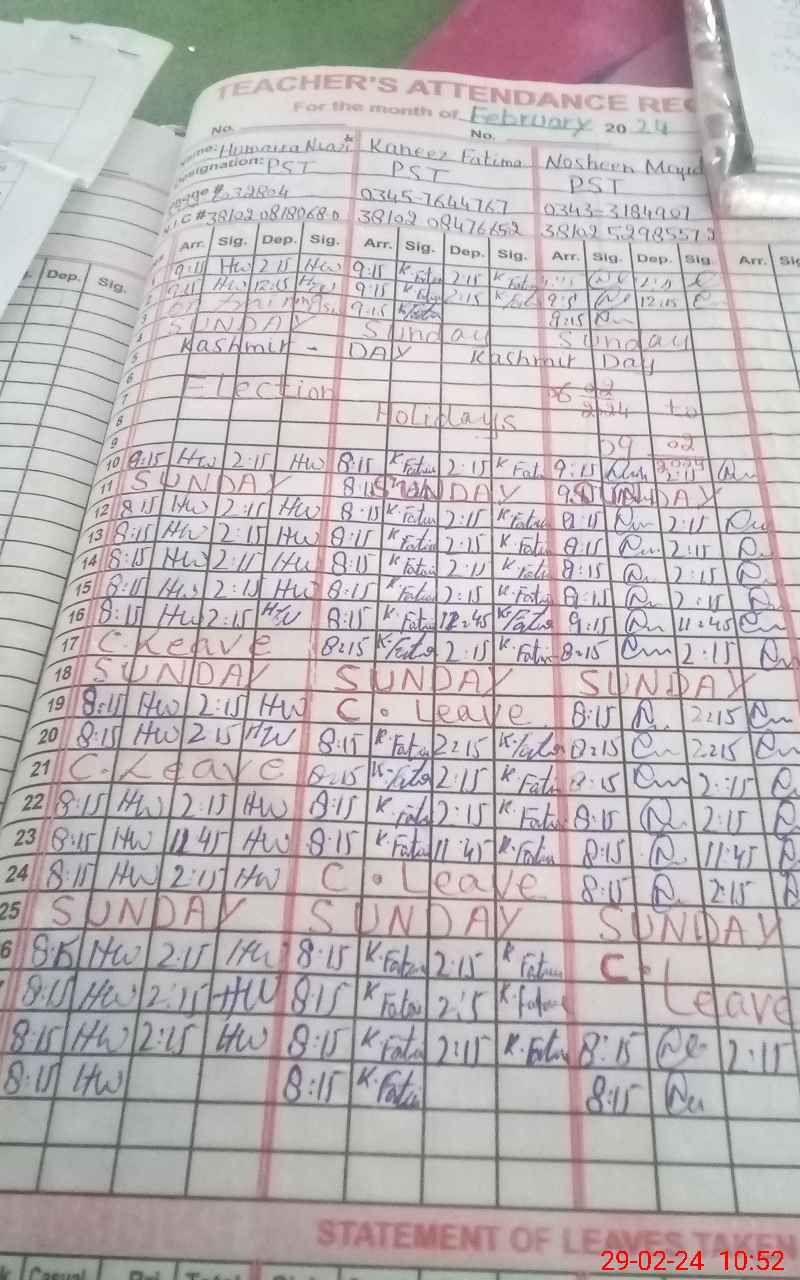 TEACHER'S ATTENDANCE REG
For the month of February 2024
No. No.
Name: Humaira Niazi Kaneez Fatima Nosheen Majid
Designation: PST PST PST
0345-7644767 0343-3184907
Arr. Sig. Dep. Sig. Arr. Sig. Dep. Sig. Arr. Sig. Dep. Sig. Arr. Sig
Dep. Sig.
1 9:15 HW 2:15 HW 9:15 K.Fatima 2:15 K.Fatima 2:15
2 9:15 HW 12:15 HW 9:15 K.Fatima 2:15 K.Fatima 9:15 12:15
3 on training 9:15 K.Fatima 9:15
4 SUNDAY Sunday Sunday
5 Kashmir - DAY Kashmir Day
6
7 Election 06 02 2024 to
8 Holidays
9 09 02 2024
10 8:15 HW 2:15 HW 8:15 K.Fatima 2:15 K.Fatima 9:15 2:15
11 SUNDAY SUNDAY SUNDAY
12 8:15 HW 2:15 HW 8:15 K.Fatima 2:15 K.Fatima 8:15 2:15
13 8:15 HW 2:15 HW 8:15 K.Fatima 2:15 K.Fatima 8:15 2:15
14 8:15 HW 2:15 HW 8:15 K.Fatima 2:15 K.Fatima 8:15 2:15
15 8:15 HW 2:15 HW 8:15 K.Fatima 2:15 K.Fatima 8:15 2:15
16 8:15 HW 2:15 HW 8:15 K.Fatima 11:45 K.Fatima 9:15 11:45
17 C.Leave 8:15 K.Fatima 2:15 K.Fatima 8:15 2:15
18 SUNDAY SUNDAY SUNDAY
19 8:15 HW 2:15 HW C. Leave 8:15 2:15
20 8:15 HW 2:15 HW 8:15 K.Fatima 2:15 K.Fatima 8:15 2:15
21 C.Leave 8:15 K.Fatima 2:15 K.Fatima 8:15 2:15
22 8:15 HW 2:15 HW 8:15 K.Fatima 2:15 K.Fatima 8:15 2:15
23 8:15 HW 11:45 HW 8:15 K.Fatima 11:45 K.Fatima 8:15 11:45
24 8:15 HW 2:15 HW C. Leave 8:15 2:15
25 SUNDAY SUNDAY SUNDAY
6 8:15 HW 2:15 HW 8:15 K.Fatima 2:15 K.Fatima C.
8:15 HW 2:15 HW 8:15 K.Fatima 2:15 K.Fatima Leave
8:15 HW 2:15 HW 8:15 K.Fatima 2:15 K.Fatima 8:15 2:15
8:15 HW 8:15 K.Fatima 8:15
STATEMENT OF LEAVES TAKEN
Casual
29-02-24 10:52